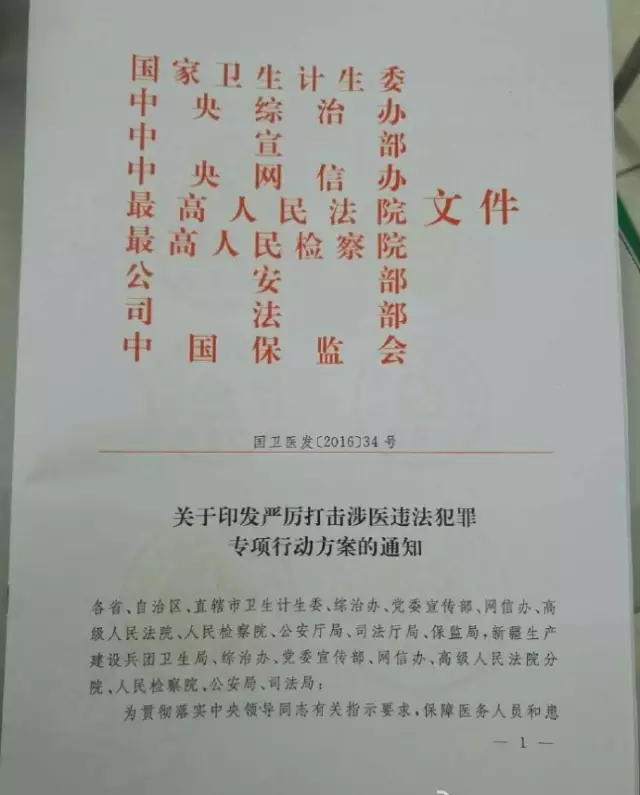 国家卫生计生委
中央综治办
中宣部
中央网信办
最高人民法院 文件
最高人民检察院
公安部
司法部
中国保监会
国卫医发〔2016〕34号
关于印发严厉打击涉医违法犯罪
专项行动方案的通知
各省、自治区、直辖市卫生计生委、综治办、党委宣传部、网信办、高
级人民法院、人民检察院、公安厅局、司法厅局、保监局，新疆生产
建设兵团卫生局、综治办、党委宣传部、网信办、高级人民法院分
院、人民检察院、公安局、司法局：
为贯彻落实中央领导同志有关指示要求，保障医务人员和患
— 1 —